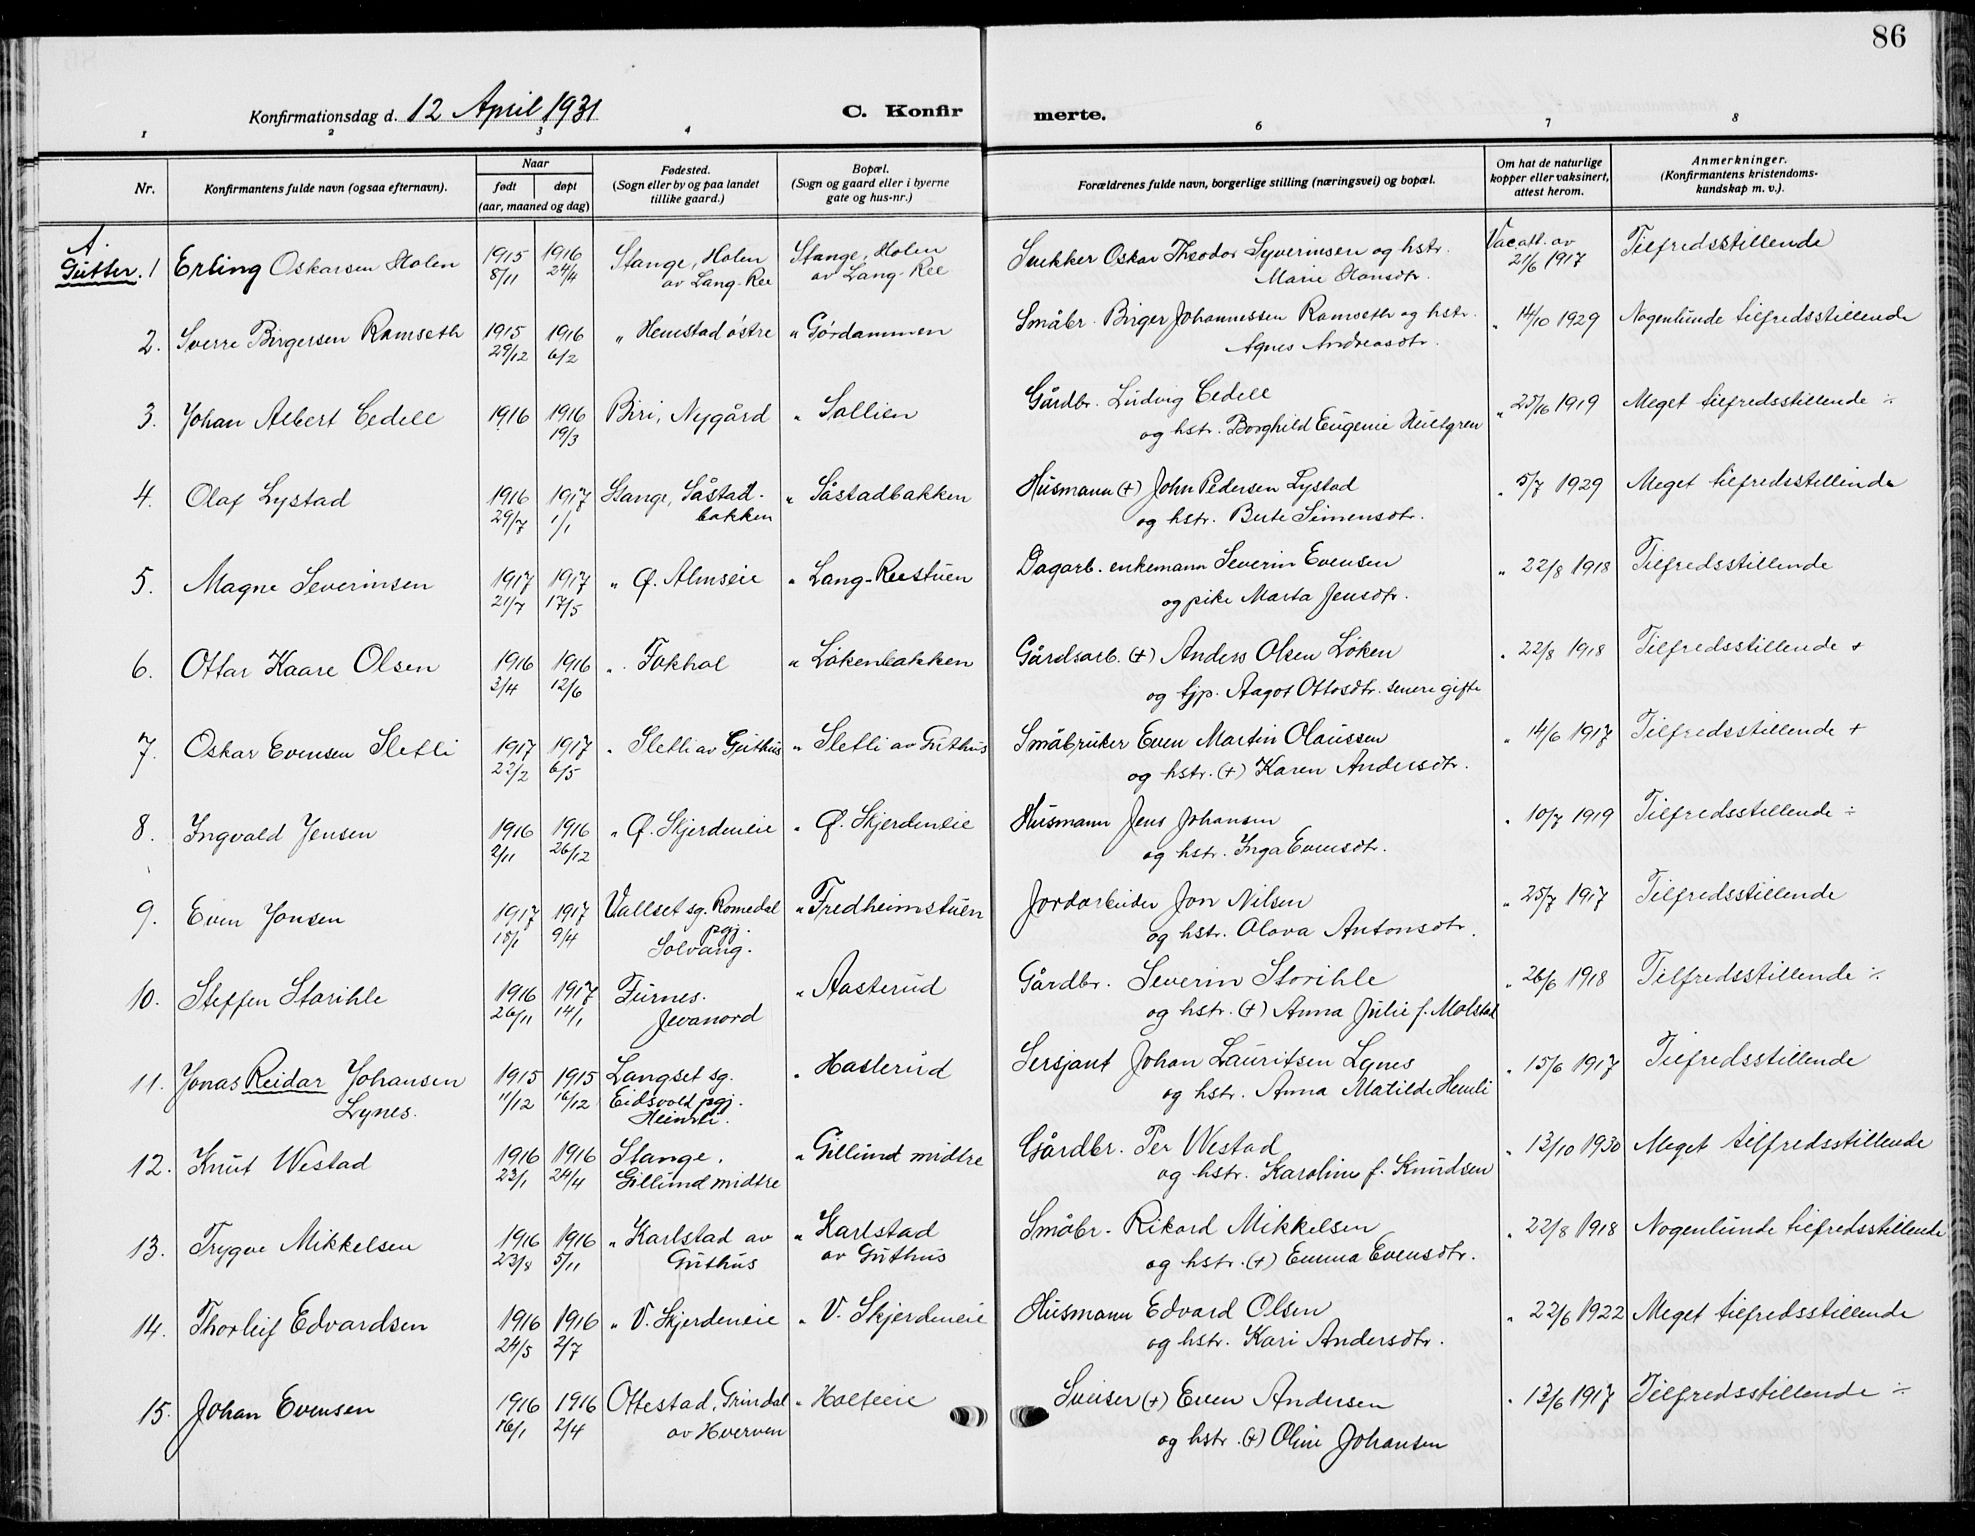 86
Konfirmationsdag d. 12 April 1931 C. Konfir merte.
1 2 3 4 6 7 8
Nr. Konfirmantens fulde navn (ogsaa efternavn). Naar født døpt (aar, maaned og dag) Fødested. (Sogn eller by og paa landet tillike gaard.) Bopæl. (Sogn og gaard eller i byerne gate og hus-nr.) Forældrenes fulde navn, borgerlige stilling (næringsvei) og bopæl. Om hat de naturlige kopper eller vaksinert, attest herom. Anmerkninger. (Konfirmantens kristendoms-kundskap m. v.).
A.
Gutter. 1 Erling Oskarsen Holen 1915 1916 Stange, Holen Stange, Holen Snekker Oskar Theodor Syverinsen og hstr. Vac. att. av Tilfredsstillende
8/11 24/4 av Lang-Ree av Lang-Ree Marie Hansdtr. 21/6 1917
2. Sverre Birgersen Ramseth 1915 1916 " Hemstad østre " Gørdammen Småbr. Birger Johannessen Ramseth og hstr. " 14/10 1929 Nogenlunde tilfredsstillende
29/12 6/2 Agnes Andreasdtr.
3. Johan Albert Cedell 1916 1916 Biri, Nygård " Sollien Gårdbr. Ludvig Cedell " 25/6 1919 Meget tilfredsstillende ÷
19/3 og hstr. Borghild Eugenie Hultgren
4. Olaf Lystad 1916 1917 Stange, Såstad- " Såstadbakken Husmann (+) John Pedersen Lystad " 5/7 1929 Meget tilfredsstillende
29/7 1/1 bakken og hstr. Berte Simensdtr.
5. Magne Severinsen 1917 1917 " Ø. Almseie " Lang-Reestuen Dagarb. enkemann Severin Evensen " 22/8 1918 Tilfredsstillende
21/7 17/5 og pike Marta Jensdtr.
6. Ottar Kaare Olsen 1916 1916 " Fokhol " Løkenbakken Gårdsarb. (+) Anders Olsen Løken " 22/8 1918 Tilfredsstillende +
3/4 12/6 og tjp. Aagot Ottosdtr. senere gifte
7. Oskar Evensen Sletli 1917 1917 " Sletli av Guthus " Sletli av Guthus Småbruker Even Martin Olaussen " 14/6 1917 Tilfredsstillende +
22/2 6/5 og hstr. (+) Karen Andersdtr.
8. Ingvald Jensen 1916 1916 " Ø. Skjerdeneie " Ø. Skjerdeneie Husmann Jens Johansen " 10/7 1919 Tilfredsstillende ÷
2/11 26/12 og hstr. Inga Evensdtr.
9. Even Jonsen 1917 1917 Vallset sg. Romedal " Fredheimstuen Jordarbeider Jon Nilsen " 25/7 1917 Tilfredsstillende
9/4 pgj. og hstr. Olava Antonsdtr.
Solvang.
10. Steffen Storihle 1916 1917 Furnes. " Aasterud Gårdbr. Severin Storihle " 26/6 1918 Tilfredsstillende ÷
26/11 14/1 Jevanord og hstr. (+) Anna Julie f. Molstad
11. Jonas Reidar Johansen 1915 1915 Langset sg. " Hasterud Sersjant Johan Lauritsen Lynes " 15/6 1917 Tilfredsstillende
Lynes. 11/12 16/12 Eidsvold pgj. og hstr. Anna Matilde Hemli
12. Knut Westad 1916 1916 Stange. " Gillund midtre Gårdbr. Per Westad " 13/10 1930 Meget tilfredsstillende
23/1 24/4 Gillund midtre og hstr. Karoline f. Knudsen
13. Trygve Mikkelsen 1916 1916 " Karlstad av " Karlstad Småbr. Rikard Mikkelsen " 22/8 1918 Nogenlunde tilfredsstillende
23/8 5/11 Guthus av Guthus og hstr. (+) Emma Evensdtr.
14. Thorleif Edvardsen 1916 1916 " V. Skjerdeneie " V. Skjerdeneie Husmann Edvard Olsen " 22/6 1922 Meget tilfredsstillende
24/5 2/7 og hstr. Kari Andersdtr.
15. Johan Evensen 1916 1916 Ottestad, Grindal " Holteie Sveiser (+) Even Andersen " 13/6 1917 Tilfredsstillende ÷
16/1 2/4 av Hverven og hstr. (+) Oline Johansen